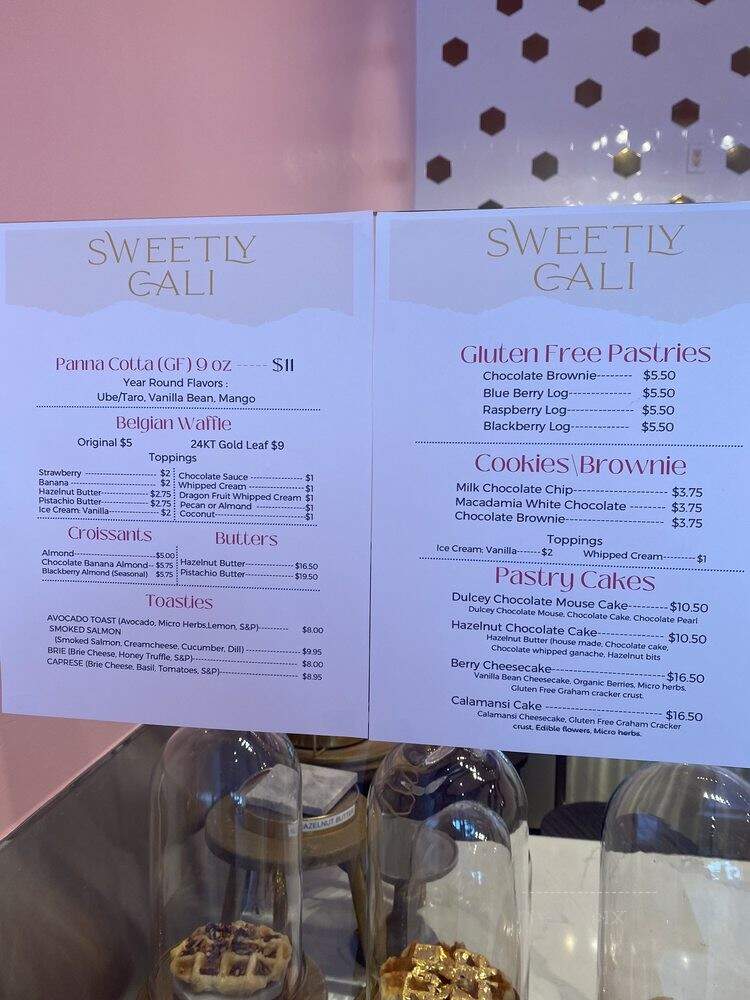 SWEETLY
CALI
Panna Cotta (GF) 9 oz ----- $11
Year Round Flavors :
Ube/Taro, Vanilla Bean, Mango
Belgian Waffle
Original $5 24KT Gold Leaf $9
Toppings
Strawberry ---------------------- $2
Banana -------------------------- $2
Hazelnut Butter--------------- $2.75
Pistachio Butter--------------- $2.75
Ice Cream: Vanilla-------------- $2
Chocolate Sauce ---------------- $1
Whipped Cream ---------------- $1
Dragon Fruit Whipped Cream $1
Pecan or Almond -------------- $1
Coconut------------------------$1
Croissants
Almond-------------------------$5.00
Chocolate Banana Almond-- $5.75
Blackberry Almond (Seasonal) $5.75
Butters
Hazelnut Butter--------------- $16.50
Pistachio Butter--------------- $19.50
Toasties
AVOCADO TOAST (Avocado, Micro Herbs,Lemon, S&P)-------- $8.00
SMOKED SALMON
(Smoked Salmon, Creamcheese, Cucumber, Dill) --------------- $9.95
BRIE (Brie Cheese, Honey Truffle, S&P)--------------------------- $8.00
CAPRESE (Brie Cheese, Basil, Tomatoes, S&P)-------------------- $8.95
SWEETLY
CALI
Gluten Free Pastries
Chocolate Brownie-------- $5.50
Blue Berry Log-------------- $5.50
Raspberry Log-------------- $5.50
Blackberry Log------------- $5.50
Cookies\Brownie
Milk Chocolate Chip--------------------- $3.75
Macadamia White Chocolate -------- $3.75
Chocolate Brownie---------------------- $3.75
Toppings
Ice Cream: Vanilla-------$2 Whipped Cream---------$1
Pastry Cakes
Dulcey Chocolate Mouse Cake---------$10.50
Dulcey Chocolate Mouse, Chocolate Cake, Chocolate Pearl
Hazelnut Chocolate Cake---------------- $10.50
Hazelnut Butter (house made, Chocolate cake,
Chocolate whipped ganache, Hazelnut bits
Berry Cheesecake--------------------------$16.50
Vanilla Bean Cheesecake, Organic Berries, Micro herbs,
Gluten Free Graham cracker crust.
Calamansi Cake --------------------------- $16.50
Calamansi Cheesecake, Gluten Free Graham Cracker
crust, Edible flowers, Micro herbs.
HAZELNUT BUTTER